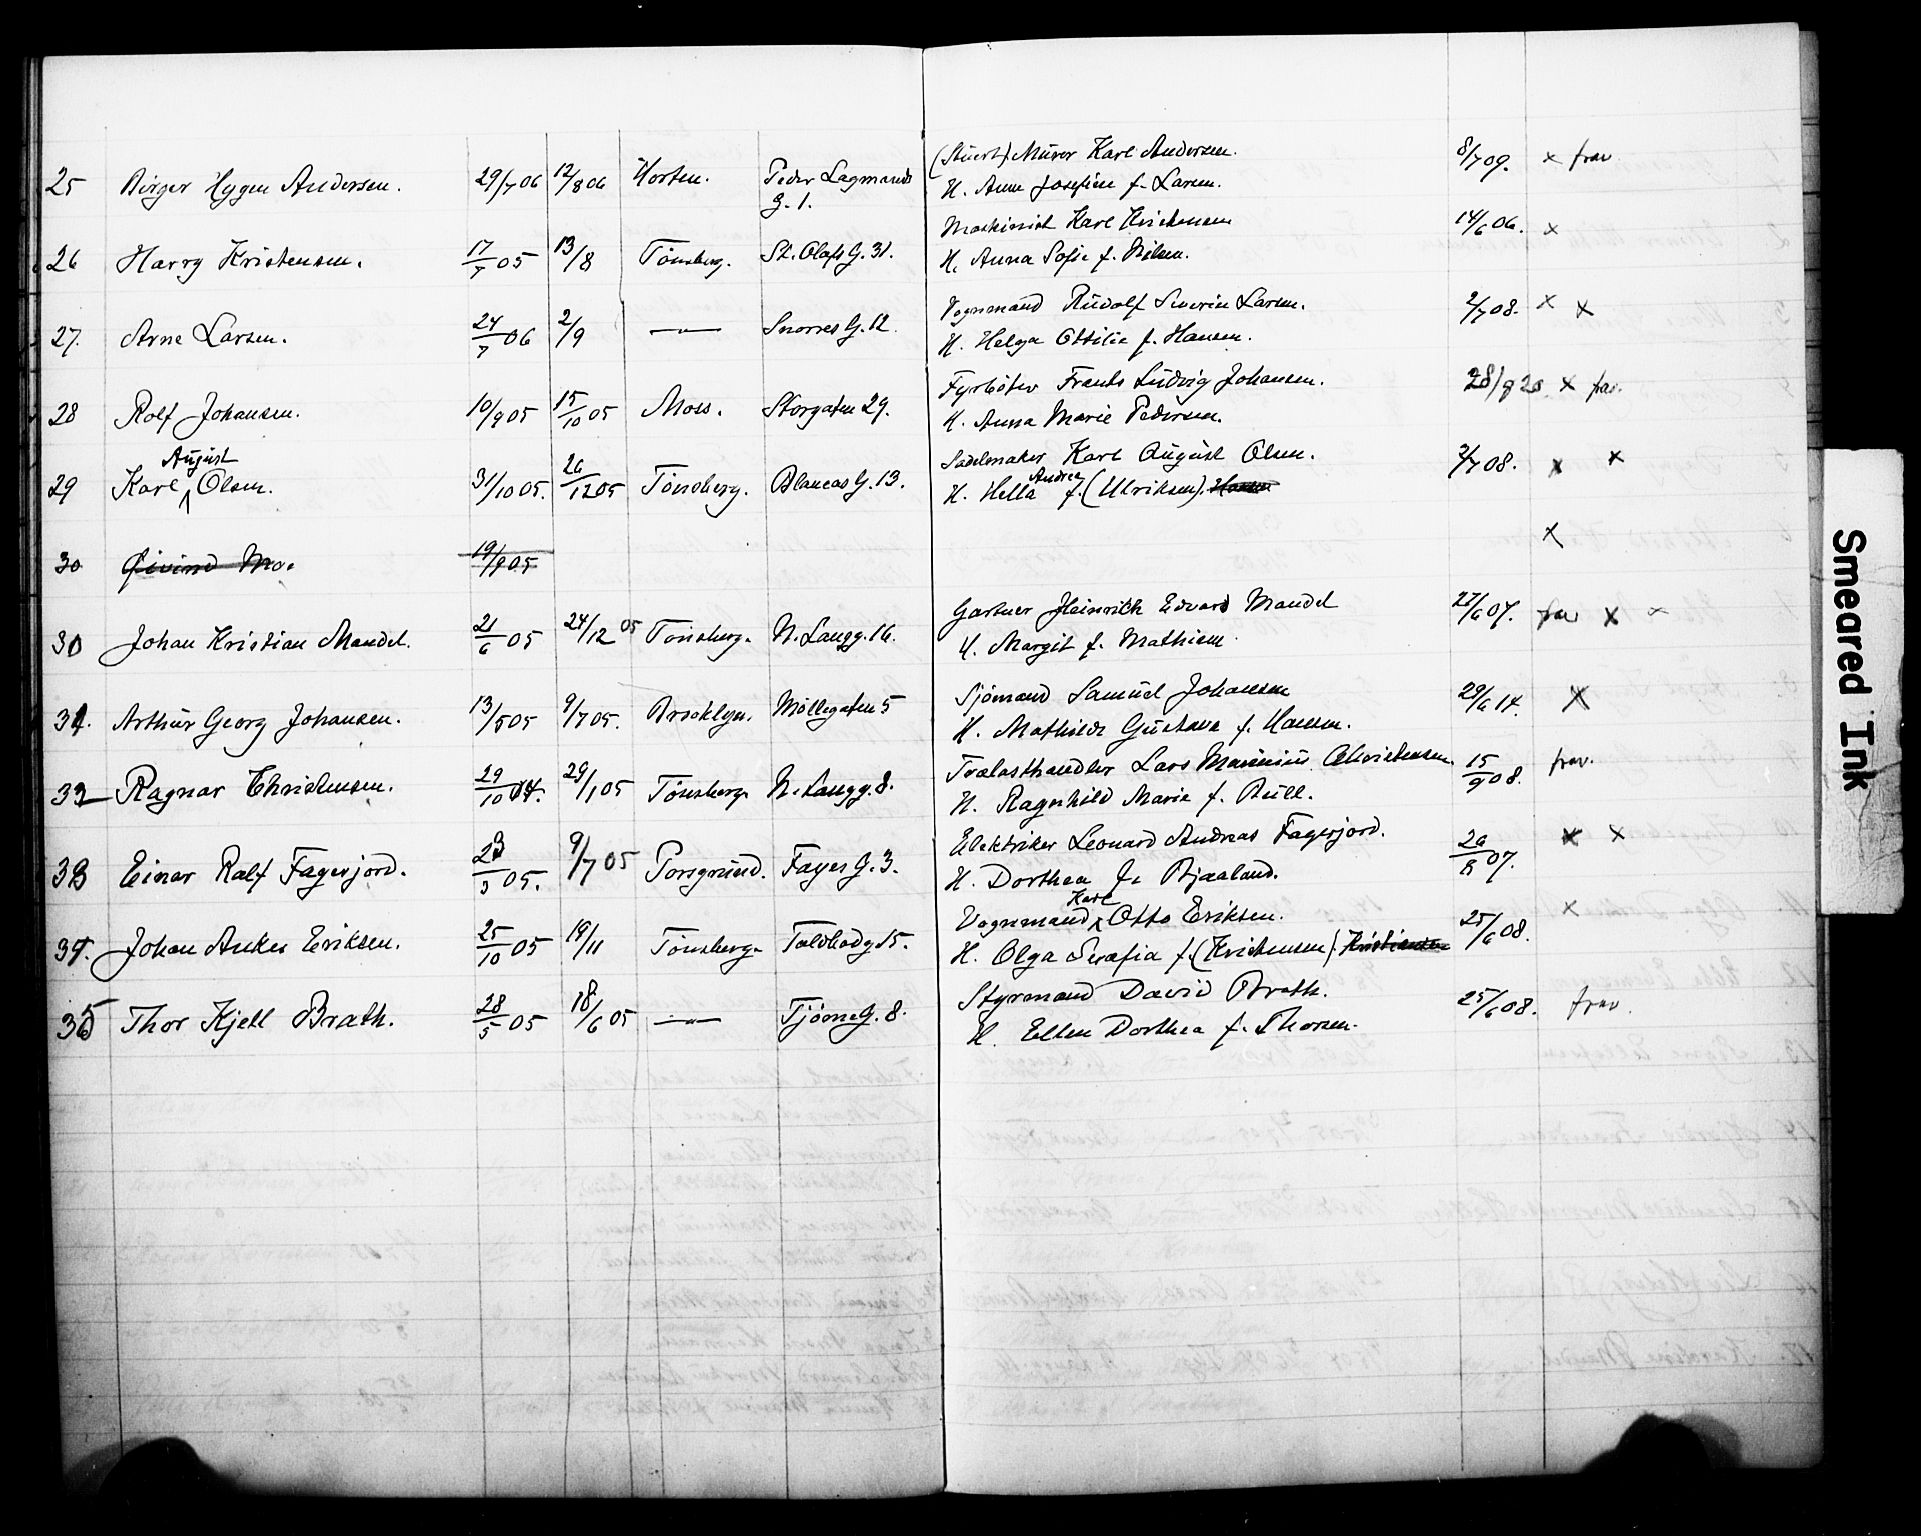 (Stuert) Murer Karl Andersen. 8/7 09. x frav.
25 Birger Hygen Andersen. 29/7 06 12/8 06 Horten. Peder Lagmands
G. 1. H. Anne Josefine f. Larsen.
Maskinist Karl Kristensen 14/6 06. x
26 Harry Kristensen. 17/5 05 13/8 Tönsberg. St. Olafs G. 31. H. Anna Sofie f. Nilsen.
Vognmand Rudolf Severin Larsen. 2/7 08. x x
27. Arne Larsen. 24/7 06 2/9 —"— Snorres G. 12. H. Helga Ottilie f. Hansen.
Fyrböter Frants Ludvig Johansen. x frav.
28 Rolf Johansen. 10/9 05 15/10 05 Moss. Storgaten 29. H. Anna Marie Pedersen.
August
Sadelmaker Karl August Olsen. 2/7 08. x x
29 Karl Olsen. 31/10 05. 26/12 05 Tönsberg. Blancas G. 13. Andrea
H. Hella f. (Ulriksen). Hansen
x
30 Øivind Mo. 19/9 05
Gartner Heinrich Edvard Mandel 27/6 07. frav x x
30 Johan Kristian Mandel. 21/6 05 24/12 05 Tönsberg. N. Langg. 16. H. Margit f. Mathisen.
Sjömand Samuel Johansen 29/6 14. x
31. Arthur Georg Johansen. 13/5 05 9/7 05. Brooklyn. Möllegaten 5 H. Mathilde Gustava f. Hansen.
Trælasthandler Lars Marinius Christensen. 15/9 08. frav.
32 Ragnar Christensen. 29/10 04. 29/1 05 Tönsberg. N. Langg. 8. H. Ragnhild Marie f. Bull.
Elektriker Leonard Andreas Fagerjord. 26/8 07. x x
33 Einar Ralf Fagerjord. 23/3 05. 9/7 05 Porsgrund. Fayes G. 3. H. Dorthea f. Bjaaland.
Karl
Vognmand Otto Eriksen. 25/6 08. x
34. Johan Anker Eriksen. 25/10 05 19/11 Tönsberg. Toldbodg 15. H. Olga Serafia f. (Kristensen). Kristiansen
Styrmand David Brath. 25/6 08. frav.
35 Thor Kjell Brath. 28/5 05 18/6 05 —"— Tjöme G. 8. H. Ellen Dorthea f. Thorsen.
Smeared Ink